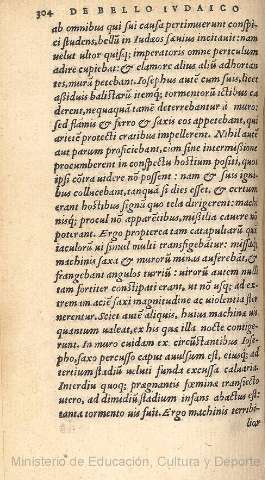 304 DE BELLO IVDAICO
ab omnibus qui sui causa pertimuerunt conspi-
ci studens, bellũ in Iudæos sæuius incitauit: nam
uelut ultor quisq; imperatoris omne periculum
adire cupiebat: & clamore alius aliũ adhortan-
tes, murã petebant. Iosephus autẽ cum suis, licet
assiduis balistarũ itemq; tormentorũ ictibus ca
derent, nequaquã tamẽ deterrebantur à muro:
sed flãmis & ferro & saxis eos appetebant, qui
arietẽ protecti cratibus impellerent. Nihil autẽ
aut parum proficiebant, cùm sine intermissione
procumberent in conspectu hostium positi, quos
ipsi cõtra uidere nõ possent: nam & suis igni-
bus collucebant, tanquã si dies esset, & certum
erant hostibus signũ quo tela dirigerent: machi-
nisq; procul nõ apparẽtibus, missilia cauere nõ
poterant. Ergo propterea tam catapultarũ quã
iaculorũ ui simul multi transfigebãtur: missaq;
machinis saxa & murorũ minas auferebãt, &
frangebant angulos turriũ: uirorũ autem nulli
tam fortiter constipati erant, ut nõ usq; ad ex-
tremam aciẽ saxi magnitudine ac uiolentia ster
nerentur. Sciet autẽ aliquis, huius machinæ uis
quantum ualeat, ex his quæ illa nocte contige-
runt. In muro cuidam ex circũstantibus Iose-
pho, saxo percusso caput auulsum est, eiusq; ad
tertium stadiũ ueluti funda excussa caluaria.
Interdiu quoq; prægnantis fœminæ transfixo
utero, ad dimidiũ stadium infans abactus est:
tanta tormento uis fuit. Ergo machinis terribi-
lior
Ministerio de Educación, Cultura y Deporte